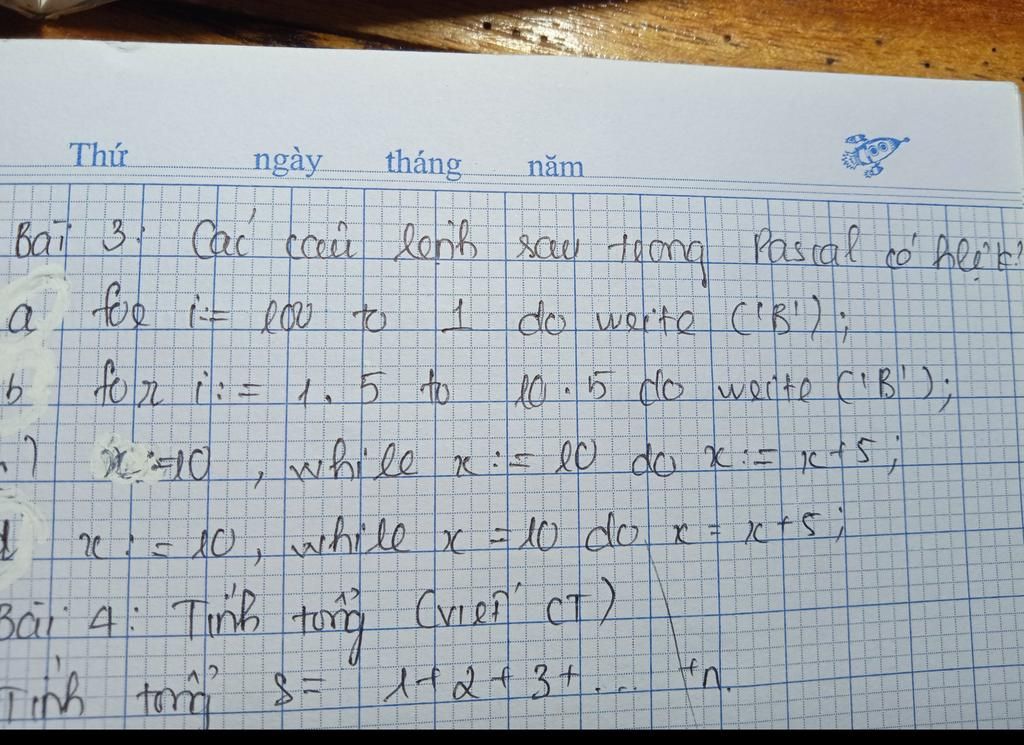 Thứ ngày tháng năm
Bài 3: Các câu lệnh sau trong Pascal có hợp lệ k?
a, for i:= 100 to 1 do write ('B');
b for i:= 1.5 to 10.5 do write ('B');
) x:=10, while x:= 10 do x:= x+5;
d x:=10, while x=10 do x= x+5;
Bài 4: Tính tổng (viết CT)
Tính tổng S= 1+2+3+... +n.